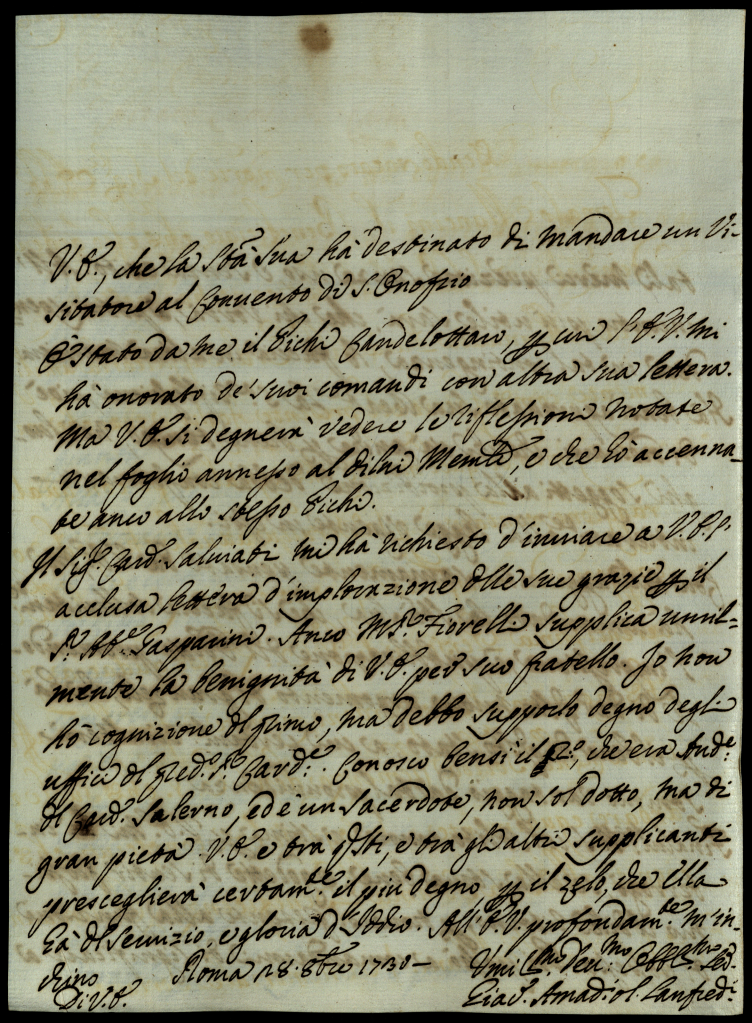 V. E., che la Stà Sua hà destinato di mandare un Vi-
sitatore al Convento di S. Onofrio
È stato da me il Pichi Candelottaro, p cui l'E. V. mi
hà onorato de' suoi comandi con altra sua lettera.
Ma V. E. si degnerà vedere le riflessioni notate
nel foglio annesso al di lui Memle, e che hò accenna-
te anco allo stesso Pichi.
Il Sigr. Card. Salviati mi hà richiesto d'inviare a V. E. l'
acclusa lettera d'implorazione delle sue grazie p il
Sr. Abe. Gasparini. Anco Msr. Fiorelli supplica umil=
mente la benignità di V. E. per suo fratello. Io non
hò cognizione del primo, ma debbo supporlo degno degli
uffici del pred.o Sr. Card.e. Conosco bensì il 2o, che era Aud.e
del Card. Salerno, ed è un sacerdote, non sol dotto, ma di
gran pietà. V. E. e trà qsti, e trà gli altri supplicanti
presceglierà certam.te il più degno p il zelo, che Ella
hà del servizio, e gloria d'Iddio. All'E. V. profondam.te m'in-
chino Roma 28. 8bre 1730-
Di V. E. Umil.mo Dev.mo Obbl.mo
Giac. Amad. ol. Lanfredi